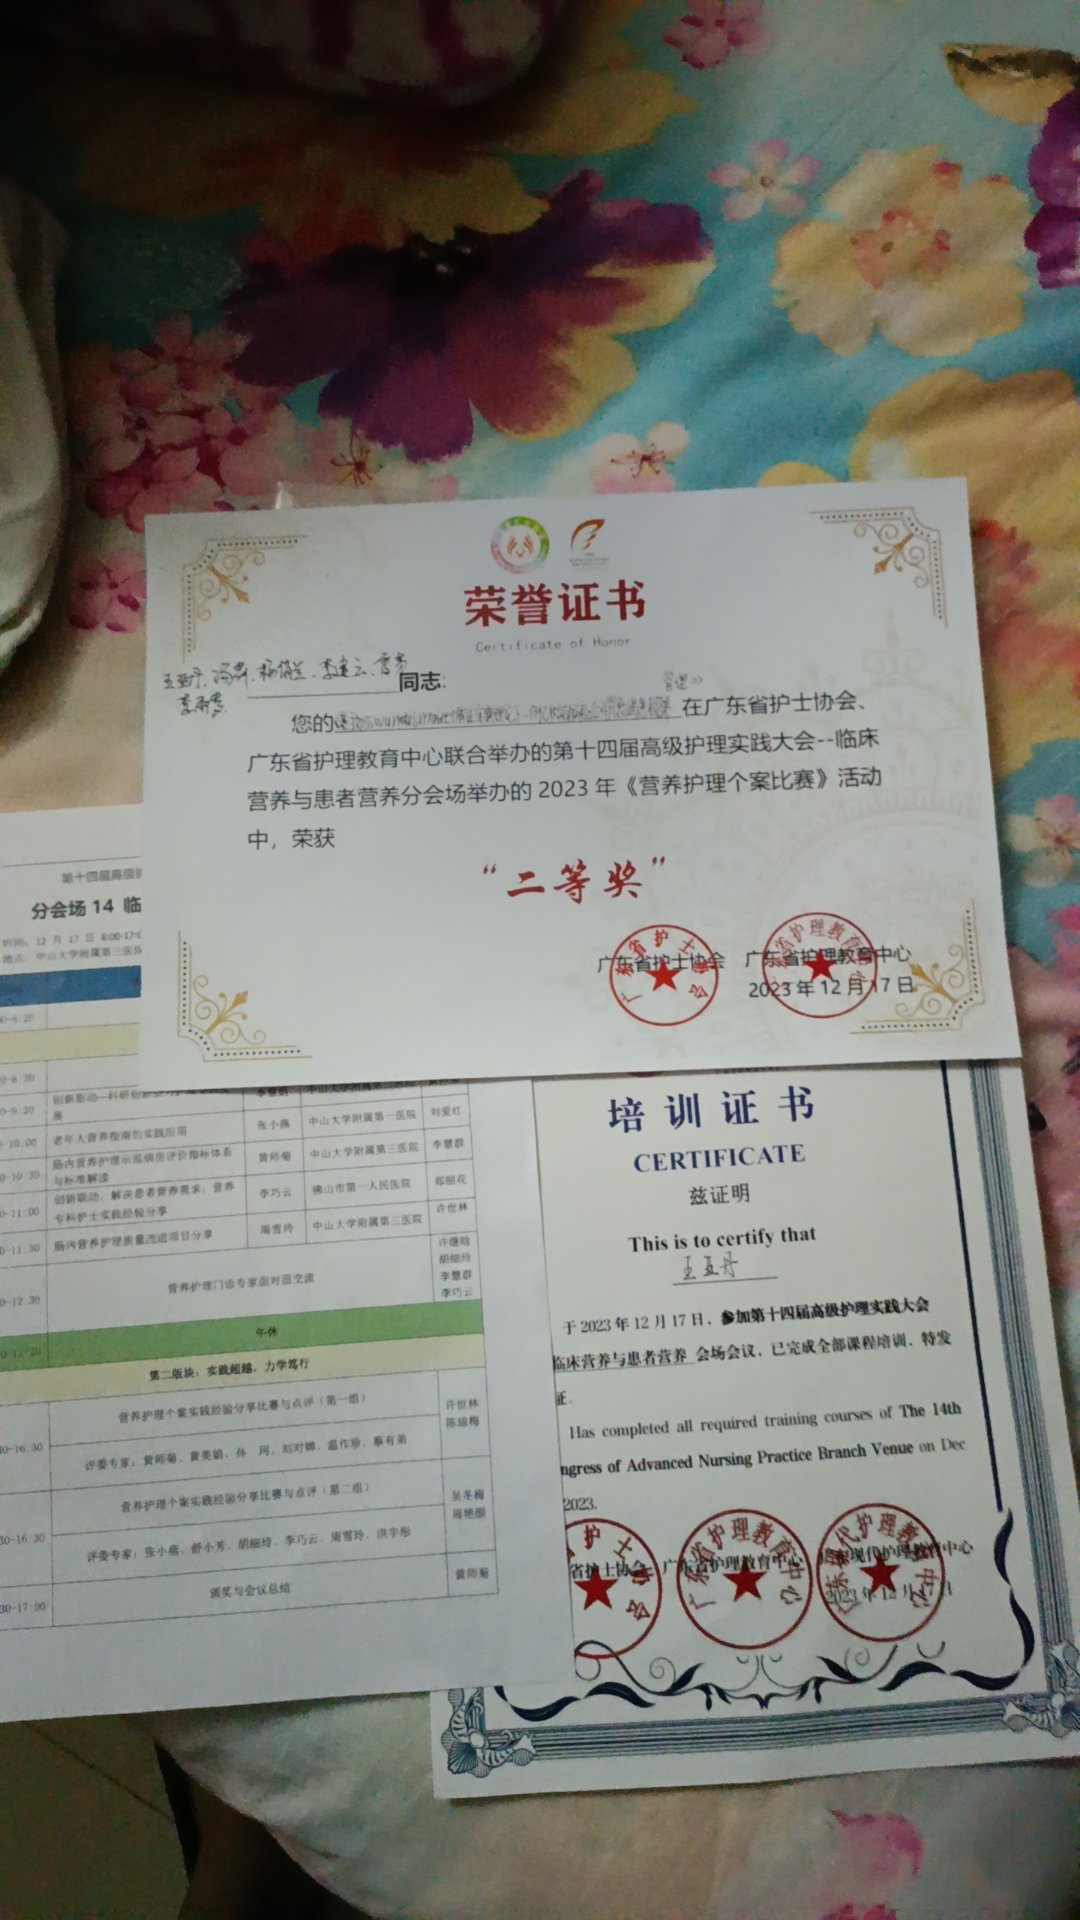 荣誉证书
Certificate of Honor
同志:
您的
在广东省护士协会、
广东省护理教育中心联合举办的第十四届高级护理实践大会--临床
营养与患者营养分会场举办的 2023 年《营养护理个案比赛》活动
中，荣获
“二等奖”
广东省护士协会 广东省护理教育中心
2023 年 12 月 17 日
第十四届高级
分会场 14 临
时间：12 月 17 日 8:00-17:0
地点：中山大学附属第三医
0-8:20
0-8:30
0-9:30
展
中山大学附属第三医院
-10:00 老年人营养指南的实践应用 张小燕 中山大学附属第一医院 刘爱红
0-10:30 肠内营养护理示范病房评价指标体系
与标准解读 黄师菊 中山大学附属第三医院 李慧群
0-11:00 创新联动，解决患者营养需求：营养
专科护士实践经验分享 李巧云 佛山市第一人民医院 郑丽花
0-11:30 肠内营养护理质量改进项目分享 周雪玲 中山大学附属第三医院 许世林
0-12:30 营养护理门诊专家面对面交流
李慧群
李巧云
午休
第二版块：实践超越，力学笃行
营养护理个案实践经验分享比赛与点评（第一组） 许世林
30-16:30
评委专家：黄师菊、黄美娟、孙 珂、刘对嫦、温作珍、蔡有弟
营养护理个案实践经验分享比赛与点评（第二组） 吴冬梅
30-16:30 周艳颜
评委专家：张小燕、舒小芳、胡细玲、李巧云、周雪玲、洪宇彤
颁奖与会议总结 黄师菊
30-17:00
培训证书
CERTIFICATE
兹证明
This is to certify that
王亚丹
于 2023 年 12 月 17 日，参加第十四届高级护理实践大会
临床营养与患者营养 会场会议，已完成全部课程培训，特发
证。
Has completed all required training courses of The 14th
ngress of Advanced Nursing Practice Branch Venue on Dec
2023.
省护士协会 广东省护理教育中心 广东现代护理教育中心
2023 年 12 月